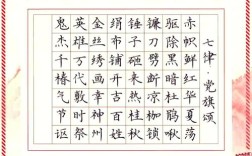 七律·党旗颂
赤帜鲜红华夏荡
驱除黑暗杜鹃啾
镰刀劈断枷锁
锤子
绢布铺开古百姓
金丝绣画幸神州
英雄万代
鬼杰千椿气节讴